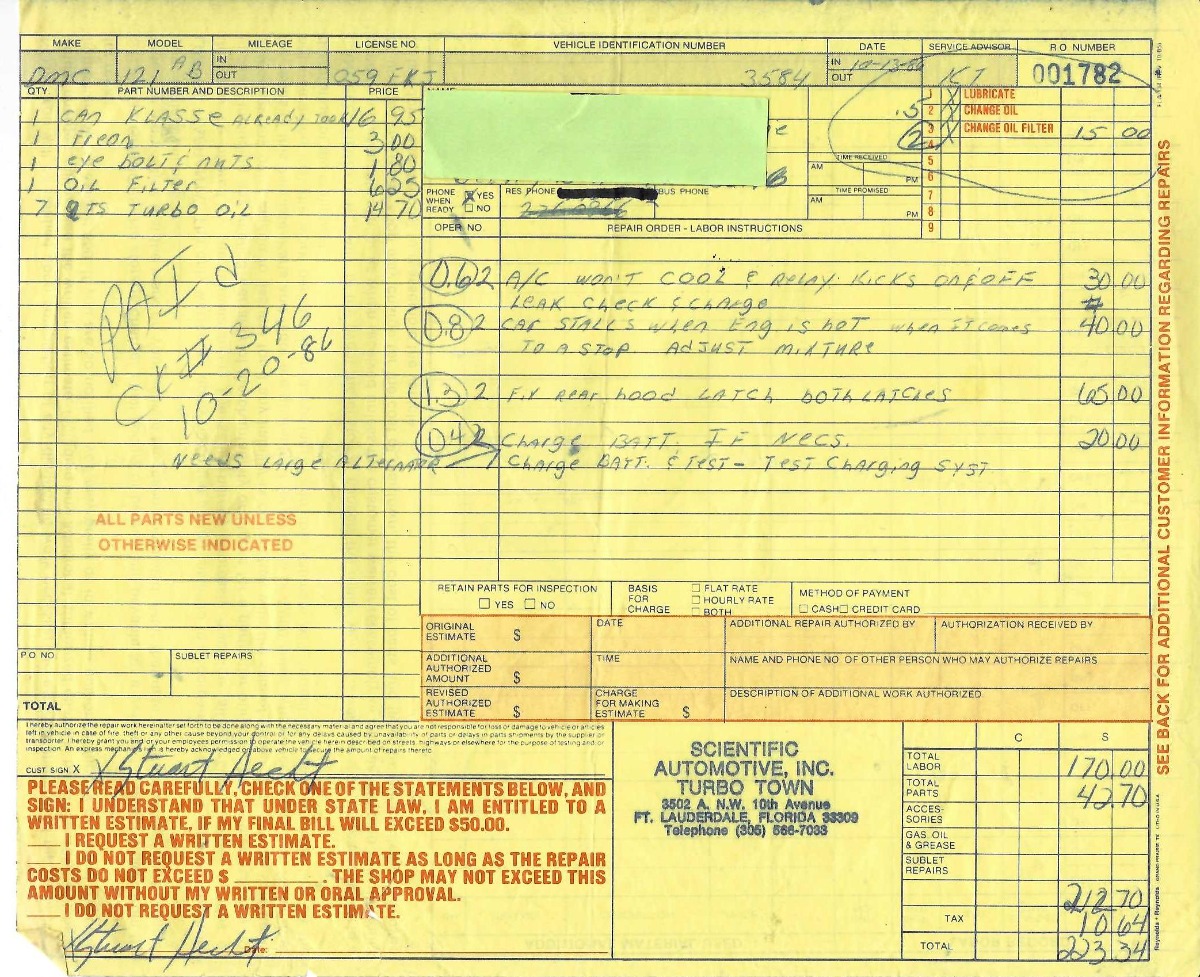 MAKE MODEL MILEAGE LICENSE NO. VEHICLE IDENTIFICATION NUMBER DATE SERVICE ADVISOR R.O. NUMBER
DMC 121 AB IN OUT 059 FKJ 3584 IN 10-13-86 OUT KJ 001782
QTY PART NUMBER AND DESCRIPTION PRICE
1 CAN KLASSE ALREADY TOOK 16 95
1 Freon 3 00
1 eye bolt & nuts 1 80
1 OIL Filter 6 25
7 QTS TURBO OIL 14 70
PAID
CK # 346
10-20-86
NEEDS LARGE ALTERNATOR
ALL PARTS NEW UNLESS
OTHERWISE INDICATED
P.O. NO. SUBLET REPAIRS
TOTAL
NAME
1 LUBRICATE
.5 2 CHANGE OIL
2 3 CHANGE OIL FILTER 15 00
4
5
6
7
8
9
TIME RECEIVED
AM PM
TIME PROMISED
AM PM
PHONE WHEN READY X YES NO RES PHONE BUS PHONE
OPER NO REPAIR ORDER - LABOR INSTRUCTIONS
0.6 2 A/C WON'T COOL & RELAY KICKS ON & OFF 30.00
LEAK CHECK & CHARGE
0.8 2 CAR STALLS when Eng is hoT when IT comes 40.00
TO A STOP ADJUST MIXTURE
1.3 2 FIX rear hood LATCH BOTH LATCHES 65.00
0.4 2 CHARGE BATT. IF NECS. 20.00
Charge BATT. & TEST - TEST Charging SYST
RETAIN PARTS FOR INSPECTION
YES NO
BASIS FOR CHARGE
FLAT RATE
HOURLY RATE
BOTH
METHOD OF PAYMENT
CASH CREDIT CARD
ORIGINAL ESTIMATE $ DATE ADDITIONAL REPAIR AUTHORIZED BY AUTHORIZATION RECEIVED BY
ADDITIONAL AUTHORIZED AMOUNT $ TIME NAME AND PHONE NO. OF OTHER PERSON WHO MAY AUTHORIZE REPAIRS
REVISED AUTHORIZED ESTIMATE $ CHARGE FOR MAKING ESTIMATE $ DESCRIPTION OF ADDITIONAL WORK AUTHORIZED
I hereby authorize the repair work hereinafter set forth to be done along with the necessary material and agree that you are not responsible for loss or damage to vehicle or articles
left in vehicle in case of fire, theft or any other cause beyond your control or for any delays caused by unavailability of parts or delays in parts shipments by the supplier or
transporter. I hereby grant you and/or your employees permission to operate the vehicle herein described on streets, highways or elsewhere for the purpose of testing and/or
inspection. An express mechanic's lien is hereby acknowledged on above vehicle to secure the amount of repairs thereto.
CUST SIGN X X Stuart Hecht
PLEASE READ CAREFULLY, CHECK ONE OF THE STATEMENTS BELOW, AND
SIGN: I UNDERSTAND THAT UNDER STATE LAW, I AM ENTITLED TO A
WRITTEN ESTIMATE, IF MY FINAL BILL WILL EXCEED $50.00.
I REQUEST A WRITTEN ESTIMATE.
I DO NOT REQUEST A WRITTEN ESTIMATE AS LONG AS THE REPAIR
COSTS DO NOT EXCEED $ . THE SHOP MAY NOT EXCEED THIS
AMOUNT WITHOUT MY WRITTEN OR ORAL APPROVAL.
I DO NOT REQUEST A WRITTEN ESTIMATE.
X Stuart Hecht Date:
SCIENTIFIC
AUTOMOTIVE, INC.
TURBO TOWN
3502 A. N.W. 10th Avenue
FT. LAUDERDALE, FLORIDA 33309
Telephone (305) 566-7033
C S
TOTAL LABOR 170.00
TOTAL PARTS 42.70
ACCESSORIES
GAS, OIL & GREASE
SUBLET REPAIRS
212.70
TAX 10.64
TOTAL 223.34
SEE BACK FOR ADDITIONAL CUSTOMER INFORMATION REGARDING REPAIRS